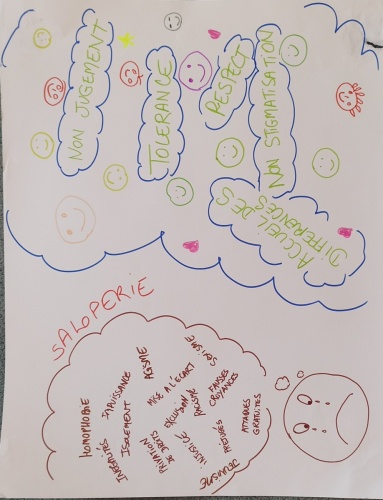 NON JUGEMENT
TOLERANCE
RESPECT
NON STIGMATISATION
ACCUEIL DES
DIFFERENCES
SALOPERIE
HOMOPHOBIE
INEGALITÉS
IMPUISSANCE
ISOLEMENT
AGISME
PRIVATION
DE DROITS
MISE A L'ÉCART
EXCLUSION
RACISME
SEXISME
INJUSTICE
FAUSSES
CROYANCES
PREJUGÉS
ATTAQUES
GRATUITES